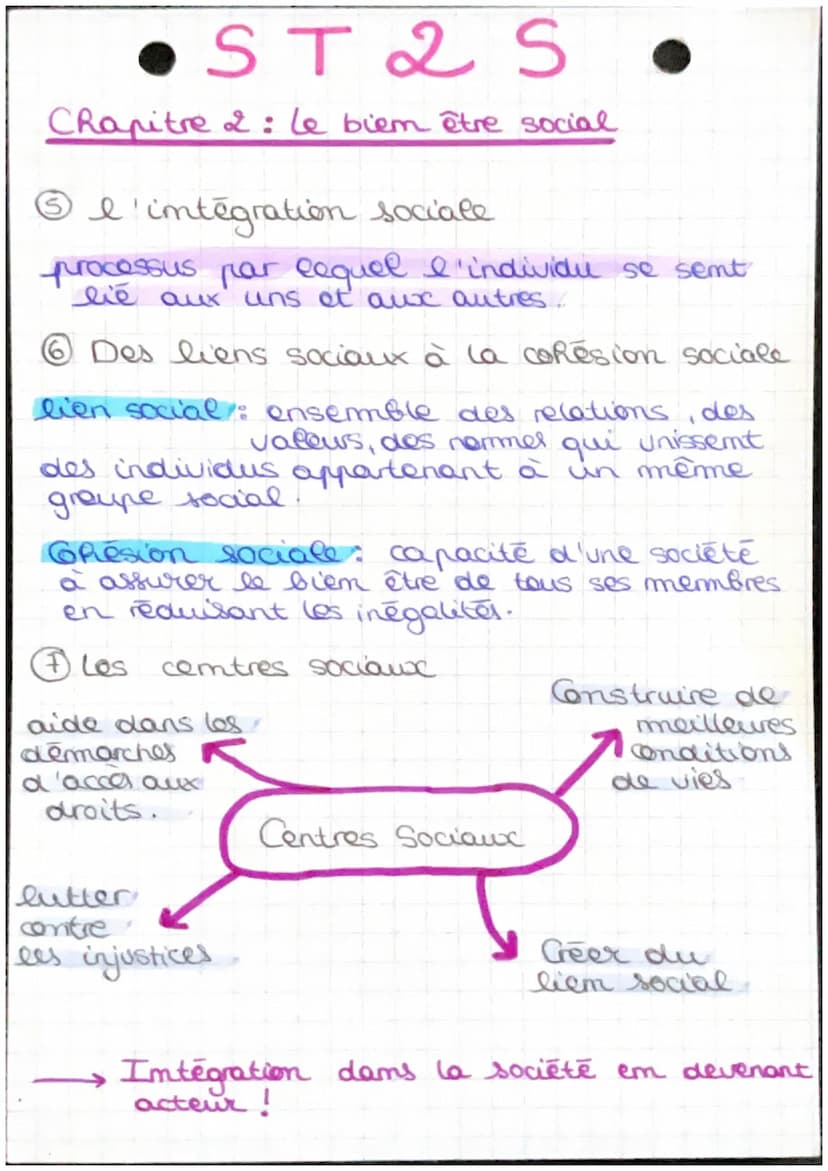 ST2S
Chapitre 2 : le bien être social
⑤ l'intégration sociale
processus par lequel l'individu se sent
lié aux uns et aux autres.
⑥ Des liens sociaux à la cohésion sociale
lien social : ensemble des relations, des
valeurs, des normes qui unissent
des individus appartenant à un même
groupe social.
Cohésion sociale : capacité d'une société
à assurer le bien être de tous ses membres
en réduisant les inégalités.
⑦ Les centres sociaux
Construire de
meilleures
conditions
de vies
aide dans les
démarches
d'accès aux
droits.
Centres Sociaux
lutter
contre
les injustices
Créer du
lien social
→ Intégration dans la société en devenant
acteur !